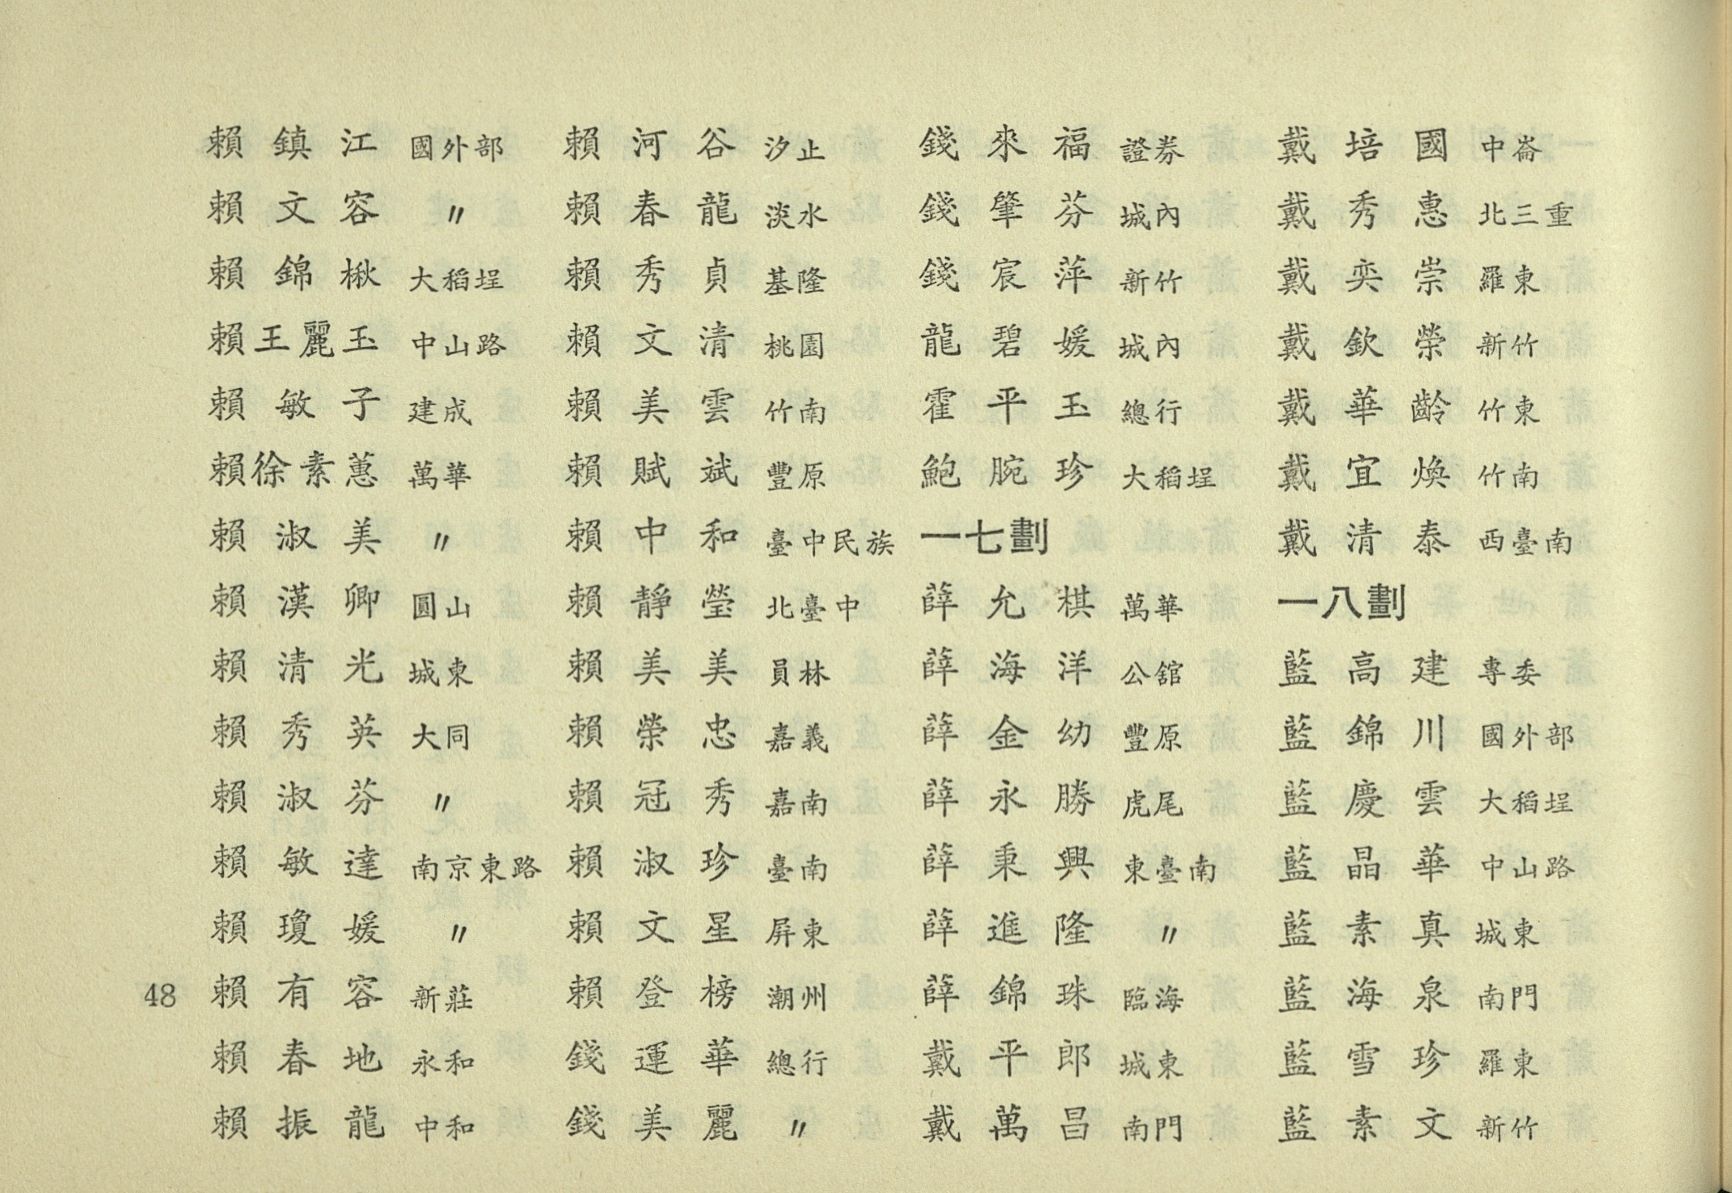 賴鎮江 國外部
賴文容 〃
賴錦楸 大稻埕
賴王麗玉 中山路
賴敏子 建成
賴徐素蕙 萬華
賴淑美 〃
賴漢卿 圓山
賴清光 城東
賴秀英 大同
賴淑芬 〃
賴敏達 南京東路
賴瓊媛 〃
賴有容 新莊
賴春地 永和
賴振龍 中和
賴河谷 汐止
賴春龍 淡水
賴秀貞 基隆
賴文清 桃園
賴美雲 竹南
賴賦斌 豐原
賴中和 臺中民族
賴靜瑩 北臺中
賴美美 員林
賴榮忠 嘉義
賴冠秀 嘉南
賴淑珍 臺南
賴文星 屏東
賴登榜 潮州
錢運華 總行
錢美麗 〃
錢來福 證券
錢肇芬 城內
錢宸萍 新竹
龍碧媛 城內
霍平玉 總行
鮑腕珍 大稻埕
一七劃
薛允棋 萬華
薛海洋 公舘
薛金幼 豐原
薛永勝 虎尾
薛秉興 東臺南
薛進隆 〃
薛錦珠 臨海
戴平郎 城東
戴萬昌 南門
戴培國 中崙
戴秀惠 北三重
戴奕崇 羅東
戴欽榮 新竹
戴華齡 竹東
戴宜煥 竹南
戴清泰 西臺南
一八劃
藍高建 專委
藍錦川 國外部
藍慶雲 大稻埕
藍晶華 中山路
藍素真 城東
藍海泉 南門
藍雪珍 羅東
藍素文 新竹
48